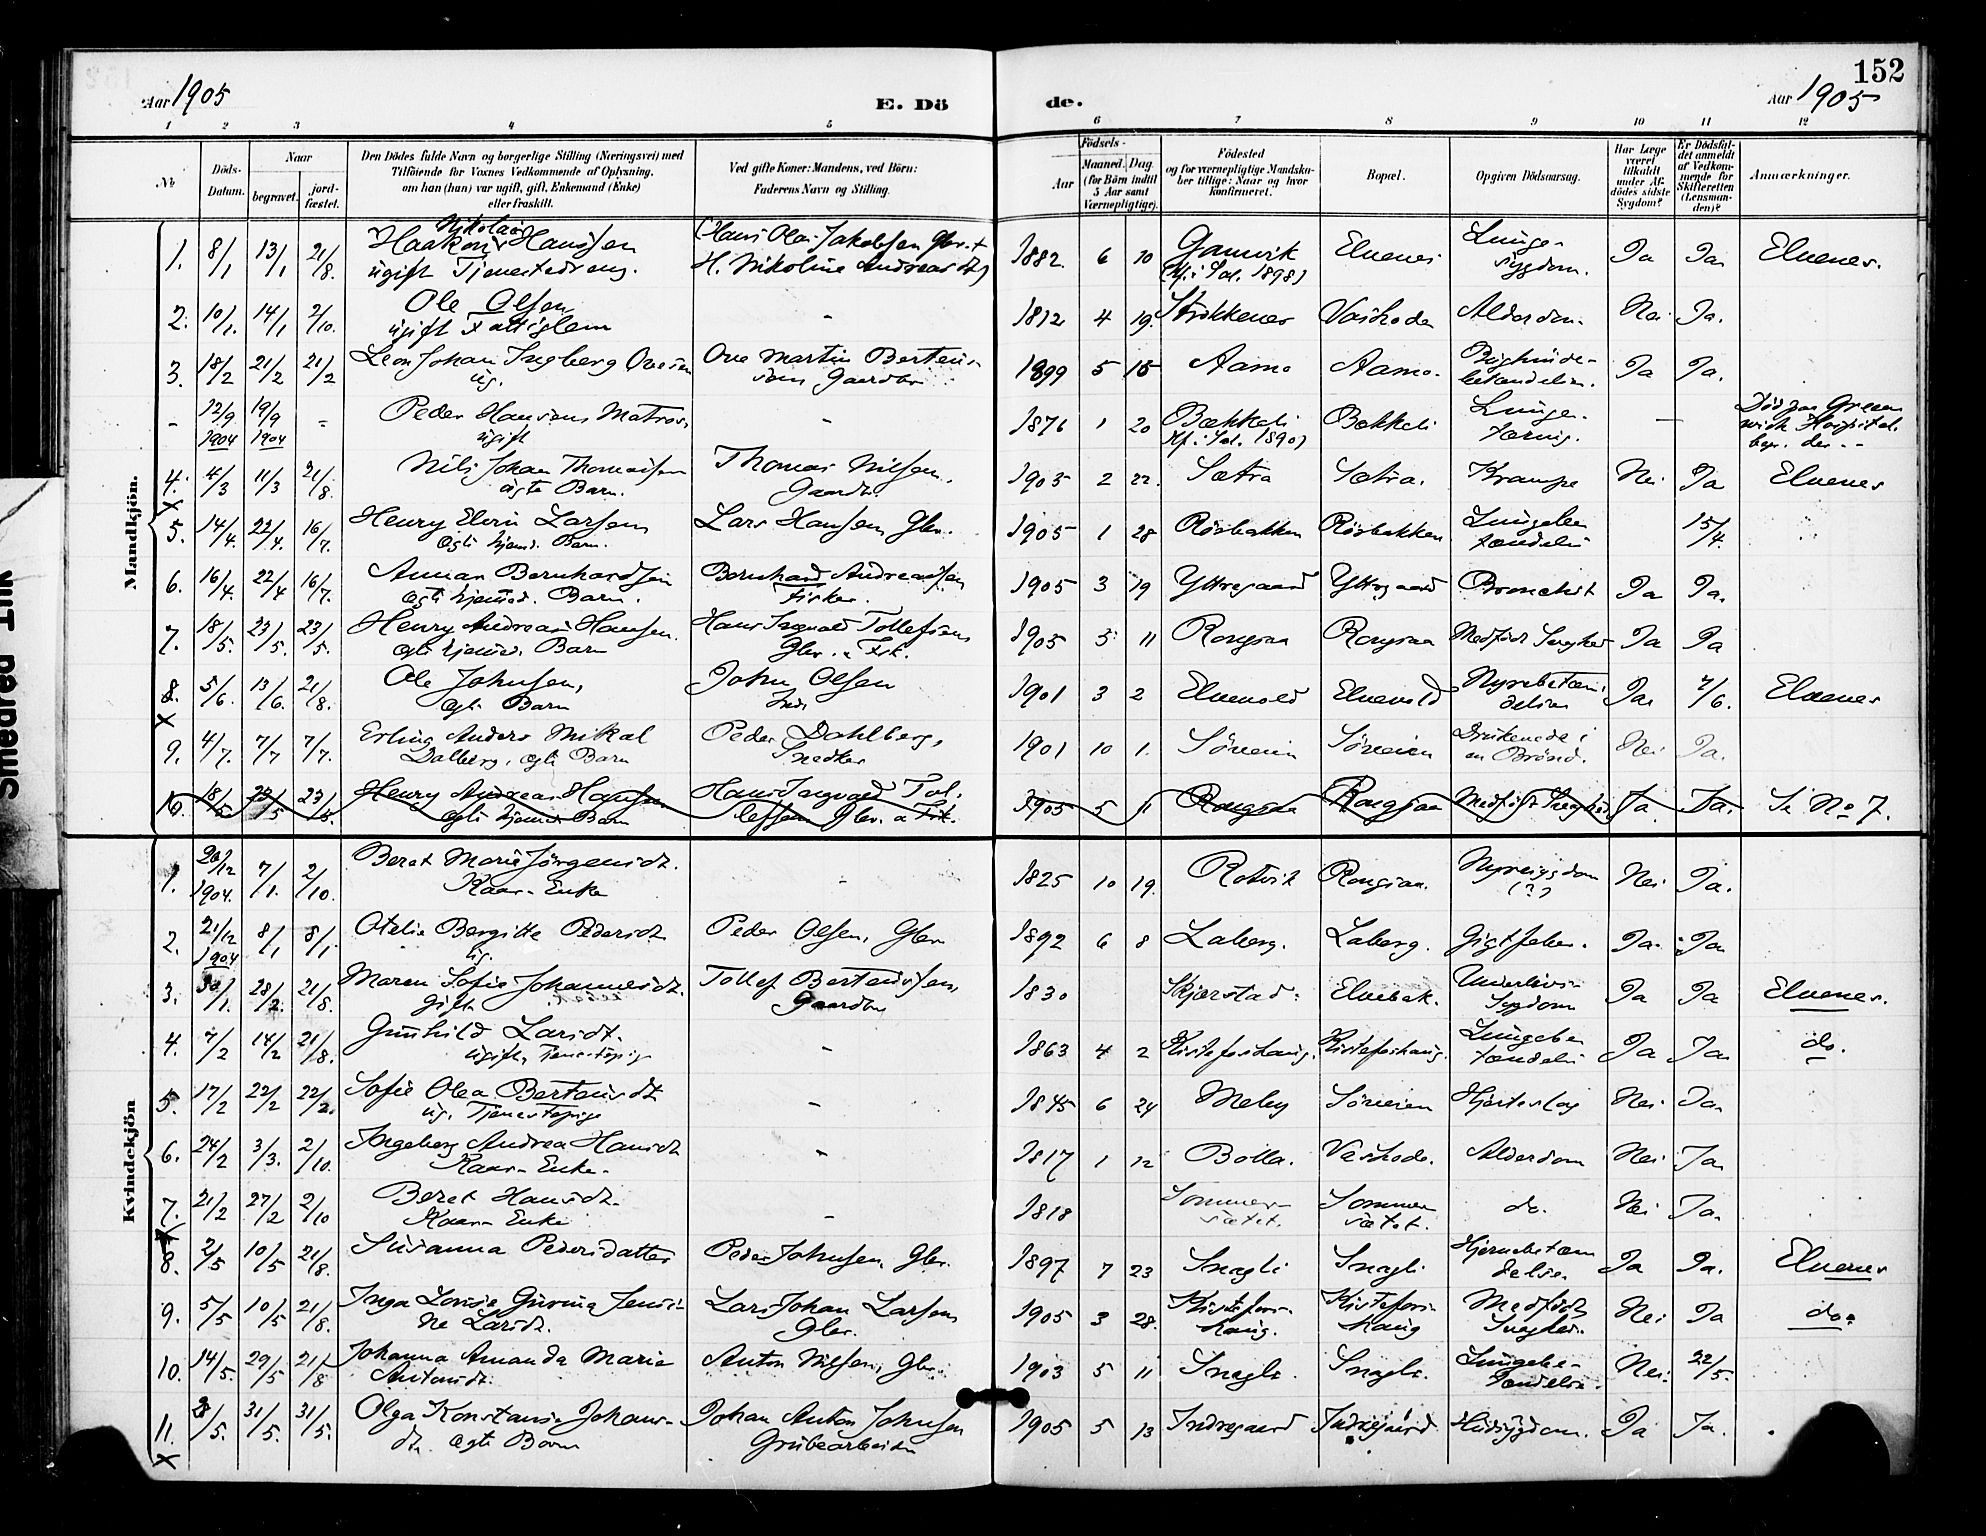 152
Aar 1905
E. Dö
de.
Aar 1905
1 2 3 4 5 6 7 8 9 10 11 12
No
Döds-Datum.
Naar
begravet.
jord-fæstet.
Den Dödes fulde Navn og borgerlige Stilling (Næringsvei) med
Tilföiende for Voxnes Vedkommende af Oplysning,
om han (hun) var ugift, gift, Enkemand (Enke)
eller fraskilt.
Ved gifte Koner: Mandens, ved Börn:
Faderens Navn og Stilling.
Födsels-
Aar
Maaned.
Dag.
(for Börn indtil
5 Aar samt
Værnepligtige).
Födested
og for værnepligtige Mandska-
ber tillige: Naar og hvor
konfirmeret.
Bopæl.
Opgiven Dödsaarsag.
Har Læge
været
tilkaldt
under Af-
dödes sidste
Sygdom?
Er Dödsfal-
det anmeldt
af Vedkom-
mende for
Skifteretten
(Lensman-
den)?
Anmærkninger.
Mandkjön.
1. 8/1 13/1 21/8. Haakon Nikolai Hansen ugift Tjenestedreng. (Hans Olai Jakobsen Gbr. + H. Nikoline Andreasdt) 1882. 6 10 Gamvik (Kf. i Sal. 1898) Elvenes Lunge-sygdom. Ja Ja Elvenes.
2. 10/1. 14/1 2/10. Ole Olsen ugift Fattiglem - 1812 4 19. Strokkenes Vashode Alderdom. Nei Ja.
3. 18/2 21/2 21/2 Leon Johan Ingberg Ovesen ug. Ove Martin Bertens- sen Gaardbr 1899 5 15 Aamo Aamo. Bughinde-betændelse. Ja Ja.
- 12/9 1904 19/9 1904 - Peder Hansen Matros ugift - 1876 1 20 Bækkeli Kf. i Sal. 1890) Bekkeli Lunge-tæring. — Död paa Green wich Hospital. begr. der. -
4. 4/3 11/3 21/8. Nils Johan Thomassen ægte Barn. Thomas Nilsen, Gaardbr. 1903 2 22. Sætra Sætra. Krampe Nei Ja Elvenes
X
5. 14/4. 22/4. 16/7. Henry Elvin Larsen ægte hjemd. Barn. Lars Hansen Gbr. 1905 1 28 Rösbakken Rösbakken Lungebe tændelse 15/4.
6. 16/4. 22/4 16/7. Annar Bernhardsen ægte hjemd. Barn. Bernhard Andreassen fisker. 1905 3 19 Yttregaard Yttregaard Bronchit Ja Ja.
7. 18/5. 23/5. 23/5. Henry Andreas Hansen. ægte hjemd. Barn Hans Ingvald Tollefsen Gbr. & Fisk. 1905 5 11 Rongsaa Rongsaa Medfödt Svaghed Ja Ja
8. 5/6. 13/6. 21/8. Ole Johnsen, ægte Barn John Olsen Ind. 1901 3 2 Elvevold Elvevold Nyrebetæn-delse Ja 7/6. Elvenes
X
9. 4/7. 7/7 7/7. Erling Anders Mikal Dalberg, ægte Barn Peder Dahlberg, Snedker 1901 10 1. Sörveien Sörveien Druknede i en Brönd. Nei Ja.
10. 18/5 23/5 23/5. Henry Andreas Hansen ægte hjemd. Barn Hans Ingvald Tol- lefsen Gbr. & Fisk. 1905 5 11 Rongsaa Rongsaa Medfödt Svaghed Ja. Ja. Se No 7.
Kvindekjön
1. 20/12 1904. 7/1. 2/10. Beret Marie Jörgensdt. Kaar-Enke - 1825 10 19. Rotvik Rongsaa. Nyresygdom (?) Nei Ja.
2. 21/12 1904 8/1 8/1 Otelie Bergitte Pedersdt ug. Peder Olsen, Gbr 1892 6 8 Laberg. Laberg. Gigtfeber. Ja. Ja
3. 30/1. 28/2. 21/8. Maren Sofie Johannesdt. Gift Tollef Bertensen, Gaardbr 1830 Skjerstad. Elvebak. Underlivs-Sygdom Ja Ja Elvenes.
4. 7/2 14/2 21/8. Gunhild Larsdt. ugift, Tjenestepige - 1863 4 2 Kistefoshaug. Kistefoshaug. Lungebe tændelse Ja Ja do.
5. 17/2 22/2 22/2. Sofie Olea Bertensdt ug. Tjenestepige - 1845 6 24 Meby Sörveien Hjerteslag Nei Ja
6. 24/2 3/3. 2/10. Ingeborg Andrea Hansdt Kaar-Enke. - 1817 1 12 Bolla. Vashode. Alderdom Nei Ja
7. 21/2 27/2 2/10 Beret Hansdt. Kaar-Enke - 1818 Sommer-sætet. Sommer-sætet. do. Nei Ja.
X
8. 2/5 10/5 21/8. Susanna Pedersdatter Peder Johnsen, Gbr. 1897 7 23 Snagli Snagli Hjernebetæn delse. Ja Ja. Elvenes
9. 5/5 10/5 21/8. Inga Lovise Guvina Jensi- ne Larsdt. Lars Johan Larsen Gbr. 1905 3 28. Kistefos-haug. Kistefos-haug Medfödt Svaghed. Nei Ja do.
10. 14/5. 29/5 21/8 Johanna Amanda Marie Antonsdt. Anton Nilsen, Gbr 1903 5 11 Snagli. Snagli. Lungebe-tændelse. Nei 22/5.
11. /5. 31/5. 31/5. Olga Konstanse Johans- dt. ægte Barn Johan Anton Johnsen Grubearbeider 1905 5 13 Indregaard Indregaard Hudsygdom. Ja Ja.
X